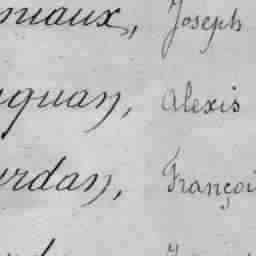 niaux, Joseph
guan, Alexis
rdan, Françoi